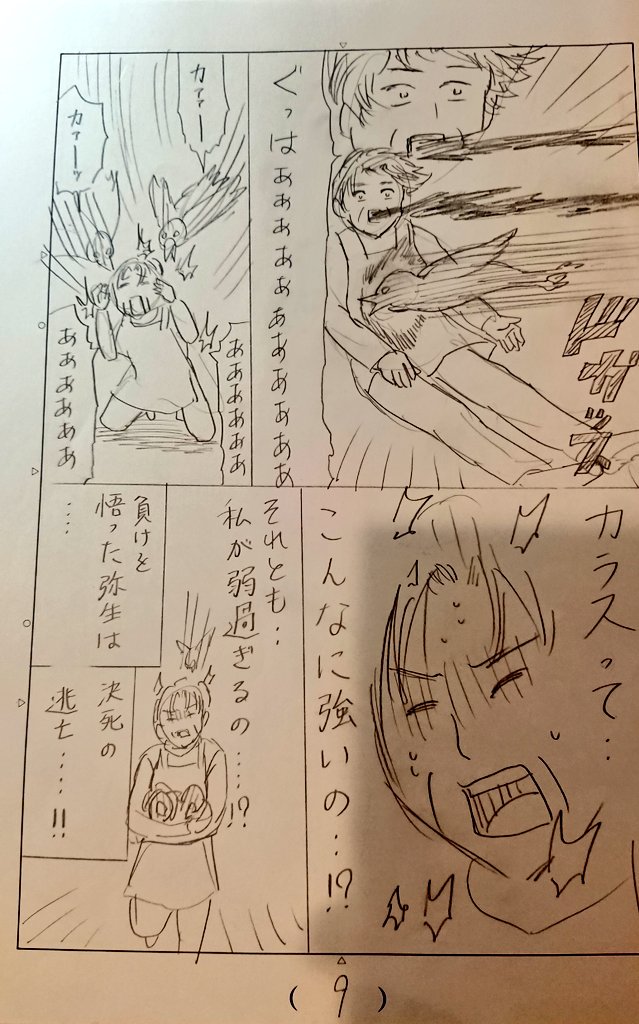 ドガッ
ぐっはぁぁぁぁぁぁぁぁぁぁぁ
カァァー
カァーッ
ああああああ
ああああああ
カラスって‥
こんなに強いの‥!?
それとも‥
私が弱過ぎるの‥‥!?
負けを
悟った弥生は
‥‥
決死の
逃亡‥‥!!
(9)